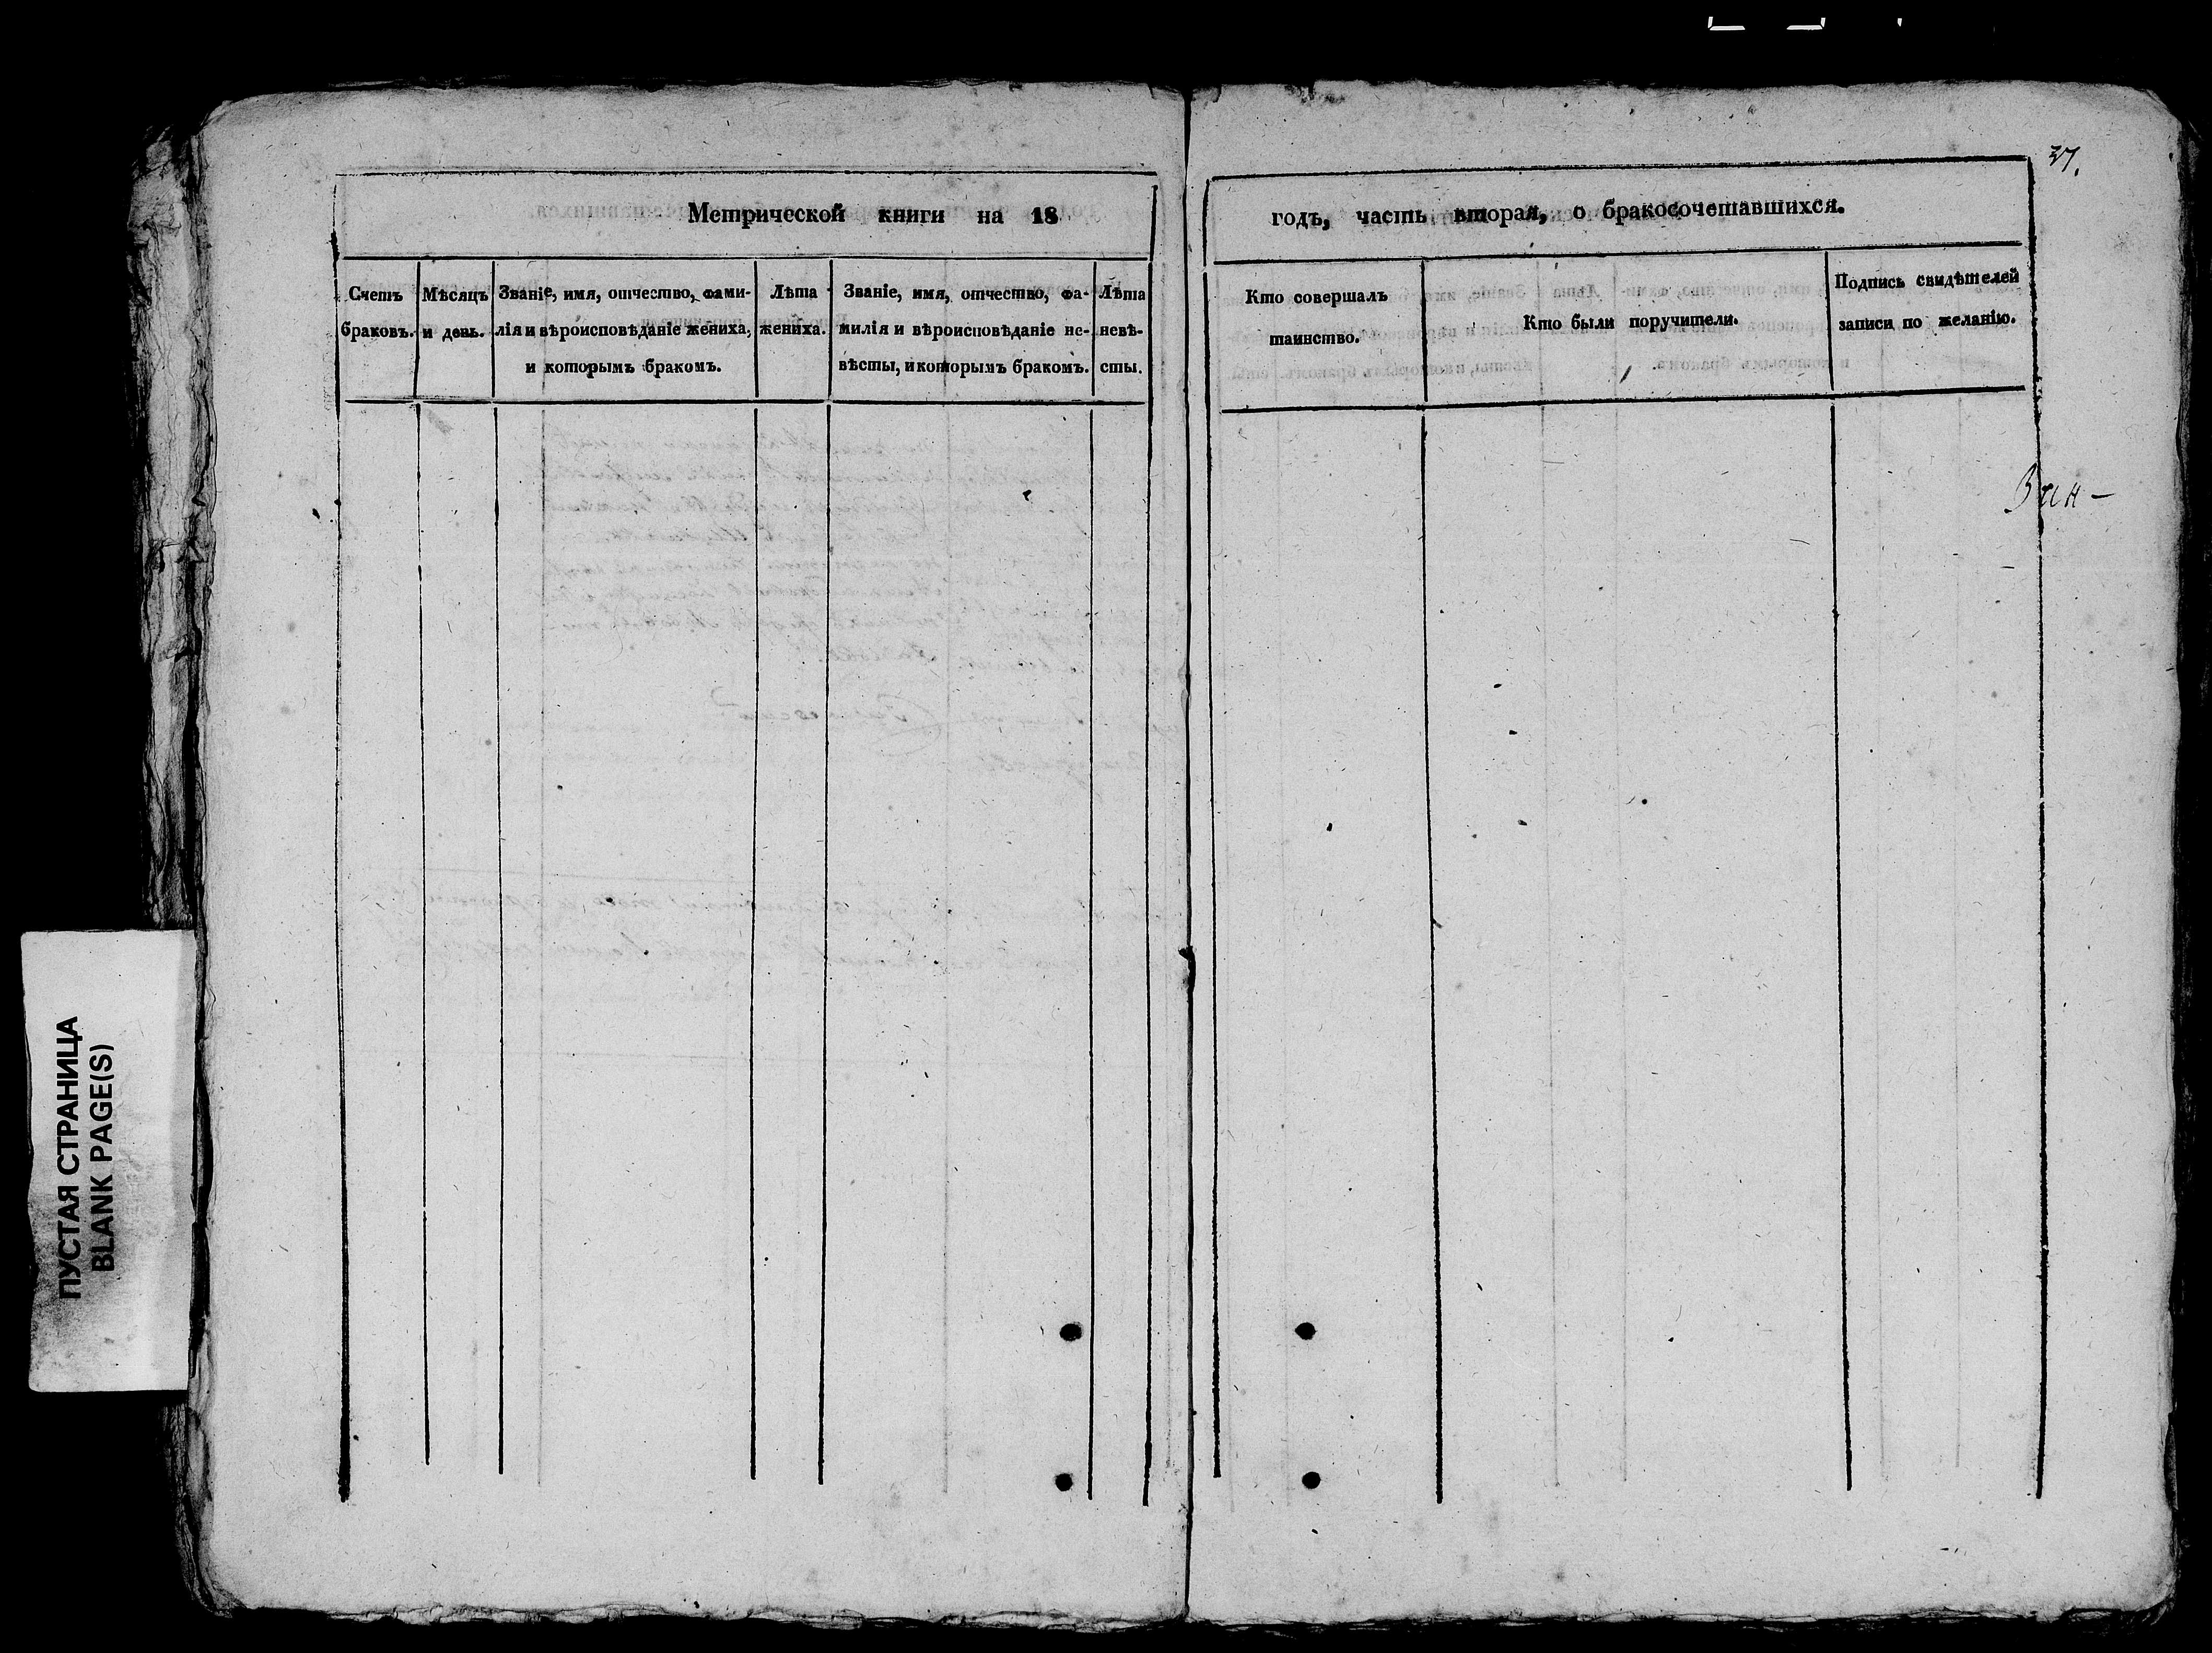 37.
Метрической книги на 18
годъ, часть вторая, о бракосочетавшихся.
Счетъ
браковъ.
Мѣсяцъ
и день.
Званіе, имя, отчество, фами-
лія и вѣроисповѣданіе жениха,
и которымъ бракомъ.
Лѣта
жениха.
Званіе, имя, отчество, фа-
милія и вѣроисповѣданіе не-
вѣсты, и которымъ бракомъ.
Лѣта
невѣ-
сты.
Кто совершалъ
таинство.
Кто были поручители.
Подпись свидѣтелей
записи по желанію.
ПУСТАЯ СТРАНИЦА
BLANK PAGE(S)